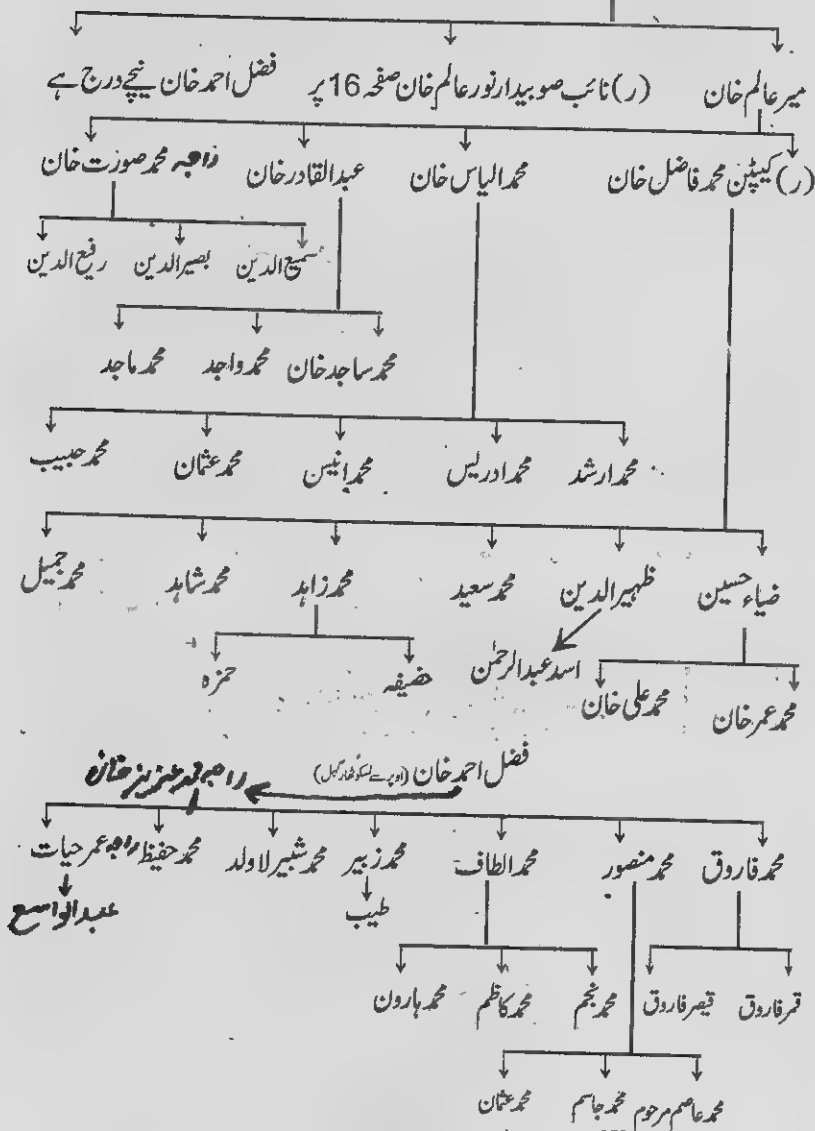 میر عالم خان (ر) نائب صوبیدار نور عالم خان صفحہ 16 پر فضل احمد خان نیچے درج ہے
(ر) کیپٹن محمد فاضل خان محمد الیاس خان عبدالقادر خان راجہ محمد صورت خان
سمیع الدین بصیر الدین رفیع الدین
محمد ساجد خان محمد واجد محمد ماجد
محمد ارشد محمد ادریس محمد انیس محمد عثمان محمد حبیب
ضیاء حسین ظہیر الدین محمد سعید محمد زاہد محمد شاہد محمد جمیل
محمد عمر خان محمد علی خان اسد عبدالرحمٰن حضیفہ حمزہ
فضل احمد خان (اوپر سے راجہ محمد عزیز خان
محمد فاروق محمد منصور محمد الطاف محمد زبیر محمد شبیر لاولد محمد حفیظ راجہ عمر حیات
طیب عبدالواسع
قمر فاروق قیصر فاروق محمد نجم محمد کاظم محمد ہارون
محمد عاصم مرحوم محمد جاسم محمد عثمان